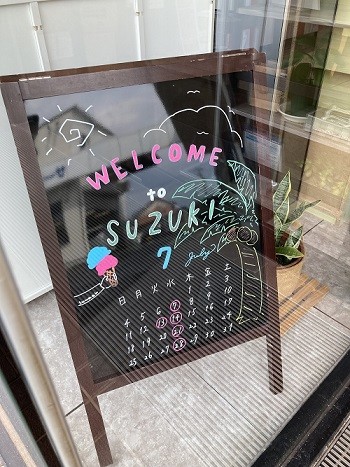 WELCOME
to
SUZUKI
7 July
日 月 火 水 木 金 土
1 2 3
4 5 6 7 8 9 10
11 12 13 14 15 16 17
18 19 20 21 22 23 24
25 26 27 28 29 30 31